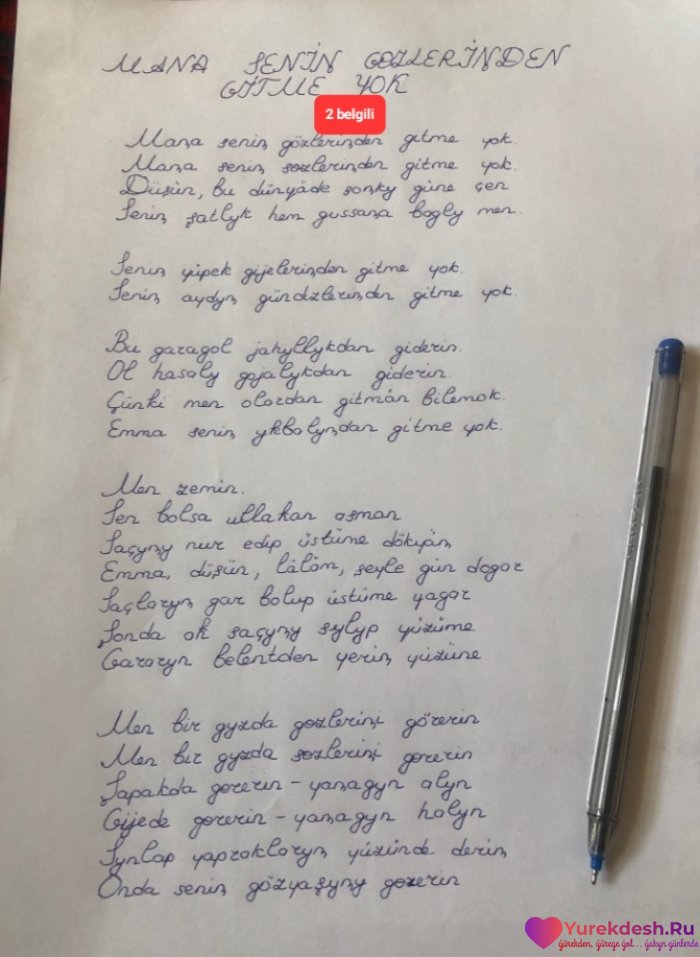 MAŅA SENIŅ GÖZLERIŅDEN
GITME YOK
2 belgili
Maņa seniņ gözleriņden gitme yok.
Maņa seniņ sozleriņden gitme yok.
Düşün, bu dünyäde soņky güne çen
Seniņ şatlyk hem gussaņa bagly men.
Seniņ yüpek gijeleriņden gitme yok.
Seniņ aydyņ gündizleriņden gitme yok.
Bu garagol jahyllykdan giderin.
Ol hasaly gojalykdan giderin.
Çünki men olardan gitmän bilemok.
Emma seniņ ykbalyņdan gitme yok.
Men zemin.
Sen bolsa ullakan asman
Saçyņy nur edip üstüme döküpäņ
Emma, düşün, läläm, şeyle gün dogar
Saçlaryņ gar bolup üstüme yagar
Şonda ak saçyņy sylyp yüzüme
Gararyn belentden yeriņ yüzüne
Men bir gyzda gozleriņi görerin
Men bir gyzda sozleriņi gorerin
Şapakda gorerin - yaņagyņ alyn
Gijede gorerin - yaņagyņ halyn
Synlap yapraklaryņ yüzünde deriņ
Onda seniņ gözyaşyņy gorerin
Yurekdesh.Ru
Ýürekden, Ýürege Ýol... Ýakyn günlerde